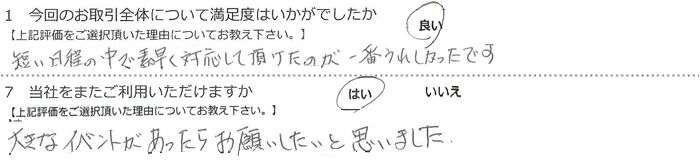 1 今回のお取引全体について満足度はいかがでしたか 良い
【上記評価をご選択頂いた理由についてお教え下さい。】
短い日程の中で素早く対応して頂けたのが一番うれしかったです
7 当社をまたご利用いただけますか はい いいえ
【上記評価をご選択頂いた理由についてお教え下さい。】
大きなイベントがあったらお願いしたいと思いました.